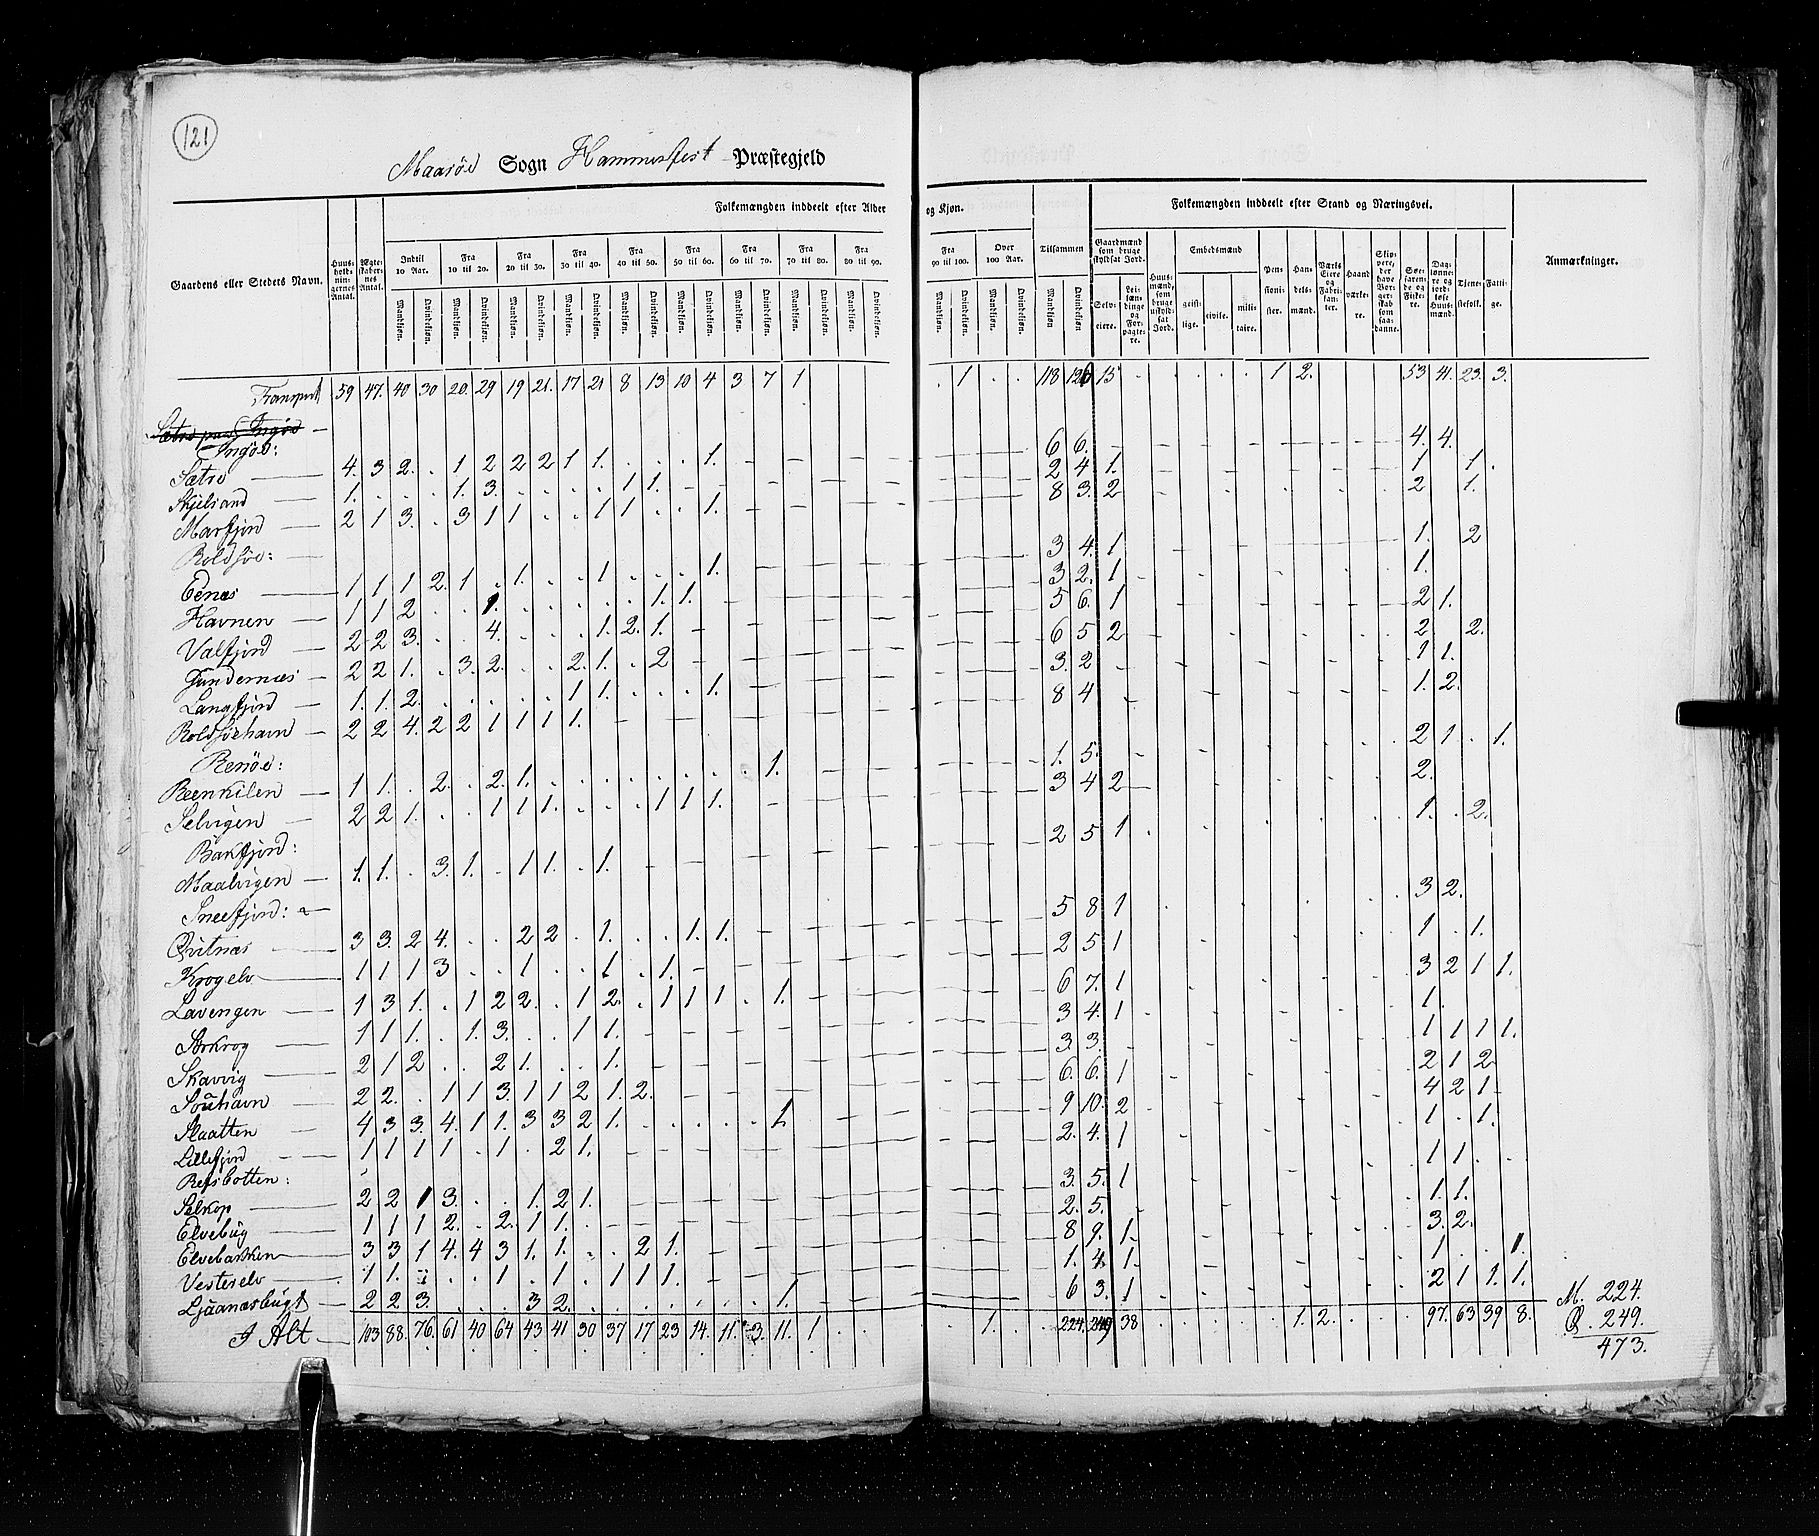 121
Maasöe Sogn Hammerfest Præstegjeld
Folkemængden inddeelt efter Alder og Kjøn.
Folkemængden inddeelt efter Stand og Næringsvei.
Gaardens eller Stedets Navn.
Huusholdningernes Antal.
Ægteskabernes Antal.
Indtil 10 Aar.
Fra 10 til 20.
Fra 20 til 30.
Fra 30 til 40.
Fra 40 til 50.
Fra 50 til 60.
Fra 60 til 70.
Fra 70 til 80.
Fra 80 til 90.
Fra 90 til 100.
Over 100 Aar.
Tilsammen
Mandkjøn. Qvindekjøn.
Gaardmænd som bruge skyldsat Jord.
Selveiere.
Leilændinge og Forpagtere.
Huusmænd, som bruge uskyldsat Jord.
Embedsmænd
geistlige.
civile.
militaire.
Pensionister.
Handelsmænd.
Værkseiere og Fabrikanter.
Haandværkere.
Skippere, der have Borgerskab som saadanne.
Søefarende og Fiskere.
Daglønnere og jordløse Huusmænd.
Tjenestefolk.
Fattige.
Anmærkninger.
Transport 59 47. 40 30 20. 29 19 21. 17 21 8 13 10 4 3 7 1 . 1 . . 118 126 15 . . . . . 1 2. 53 41. 23. 3.
Ingöe:
Sætre 4. 3 2. . 1 2 2 2 1 1. . . . 1. 6 6. 4. 4.
Skjelsand 1. . . . 1. 3. . . . . 1 1. 2 4 1. 1 1.
Marfjord 2 1 3. . 3 1 1 . . 1 1 . . 1. 8 3. 2 2 1.
Roldsöe:
Eenæs 1 1 1 2. 1 . 1. . . 1 . . . 1. 3 4. 1 1. 2
Havnen 1 1 2 . . 1. . . . . . 1. 1. 3 2. 1 1.
Valfjord 2 2 3. . . 4. . . . 1. 2. 1. 5 6. 1 2 1.
Gundernæs 2 2 1. . 3. 2. . . 2. 1. . 2 6 5 2 2 2.
Langfjord 1. 1. 2. . . . . . 1 1. . . . 1. 3. 2 1 1.
Roldsöehavn 2 2 4. 2 2 1 1 1 1. 8 4 1. 2.
Renöe:
Reenkilen 1 1. . 2. . 2. 1. . . . . . . . . 1. 1. 5. 2 1 . 1.
Selvigen 2 2 1. . . 1 1 1. . . . 1 1 1. 3 4 2 2.
Bakfjord:
Maalvigen 1. 1. . 3. 1. . 1 1. . 1. 2 5 1 1. . 2.
Sneefjord:
Qvitnæs 3 3. 2 4. . . 2 2 . 1. . . 1. 1. 5 8 1 3 2.
Krogelv 1 1 1 3 . . 1 . . 1 . 1. 2 5 1 1 . 1.
Lavengen 1 3 1. . 1 2 2. . 1 2. . 1 1 1 . 1. 6 7. 1 3 2 1 1.
Storkrog 1 1 1. . 1. 3. . . 1 1. 3 4. 1 1.
Skavvig 2 1 2 . . 2 1. . . 1. 3. 3. 1 1 1 1.
Souhavn 2 2. . 1 1 3. 1 1 2 1. 2. 6. 6. 1 2 1 2
Slaatten 4. 3 3. 4. 1 1. 3 3 2 1. . . . . . 1. 9 10. 2 4 2 1
Lillefjord 1 1 1 1 . 1 . 2 1. 2. 4. 1 1 . 1.
Refsbotten:
Selkop 2 2 1 3. . . 1. 2 1. 3. 5. 1 1 1.
Elvebug 1 1 1 2. . 2. 1 1. 2. 5. 1. 1.
Elvebakken 3 3 1 4. 4 3 1. 1. . . 2 1. 8 9. 1. 3. 2.
Vesterelv 1 1. . . . 1 . 1 . 1 1 1. 1. 4. 1. 1 . . 1.
Ljaanæsbugt 2 2 3. . . . 3 2. . . . . . . . 1. 6 3. 1 2 1 1. 1.
I Alt 103 88. 76. 61 40 64 43 41 30 37 17 23 14. 11. 3. 11. 1 . 1. . . 224. 249 38 . . . . . 1. 2. 97. 63 39 8.
M. 224.
Q. 249.
473.